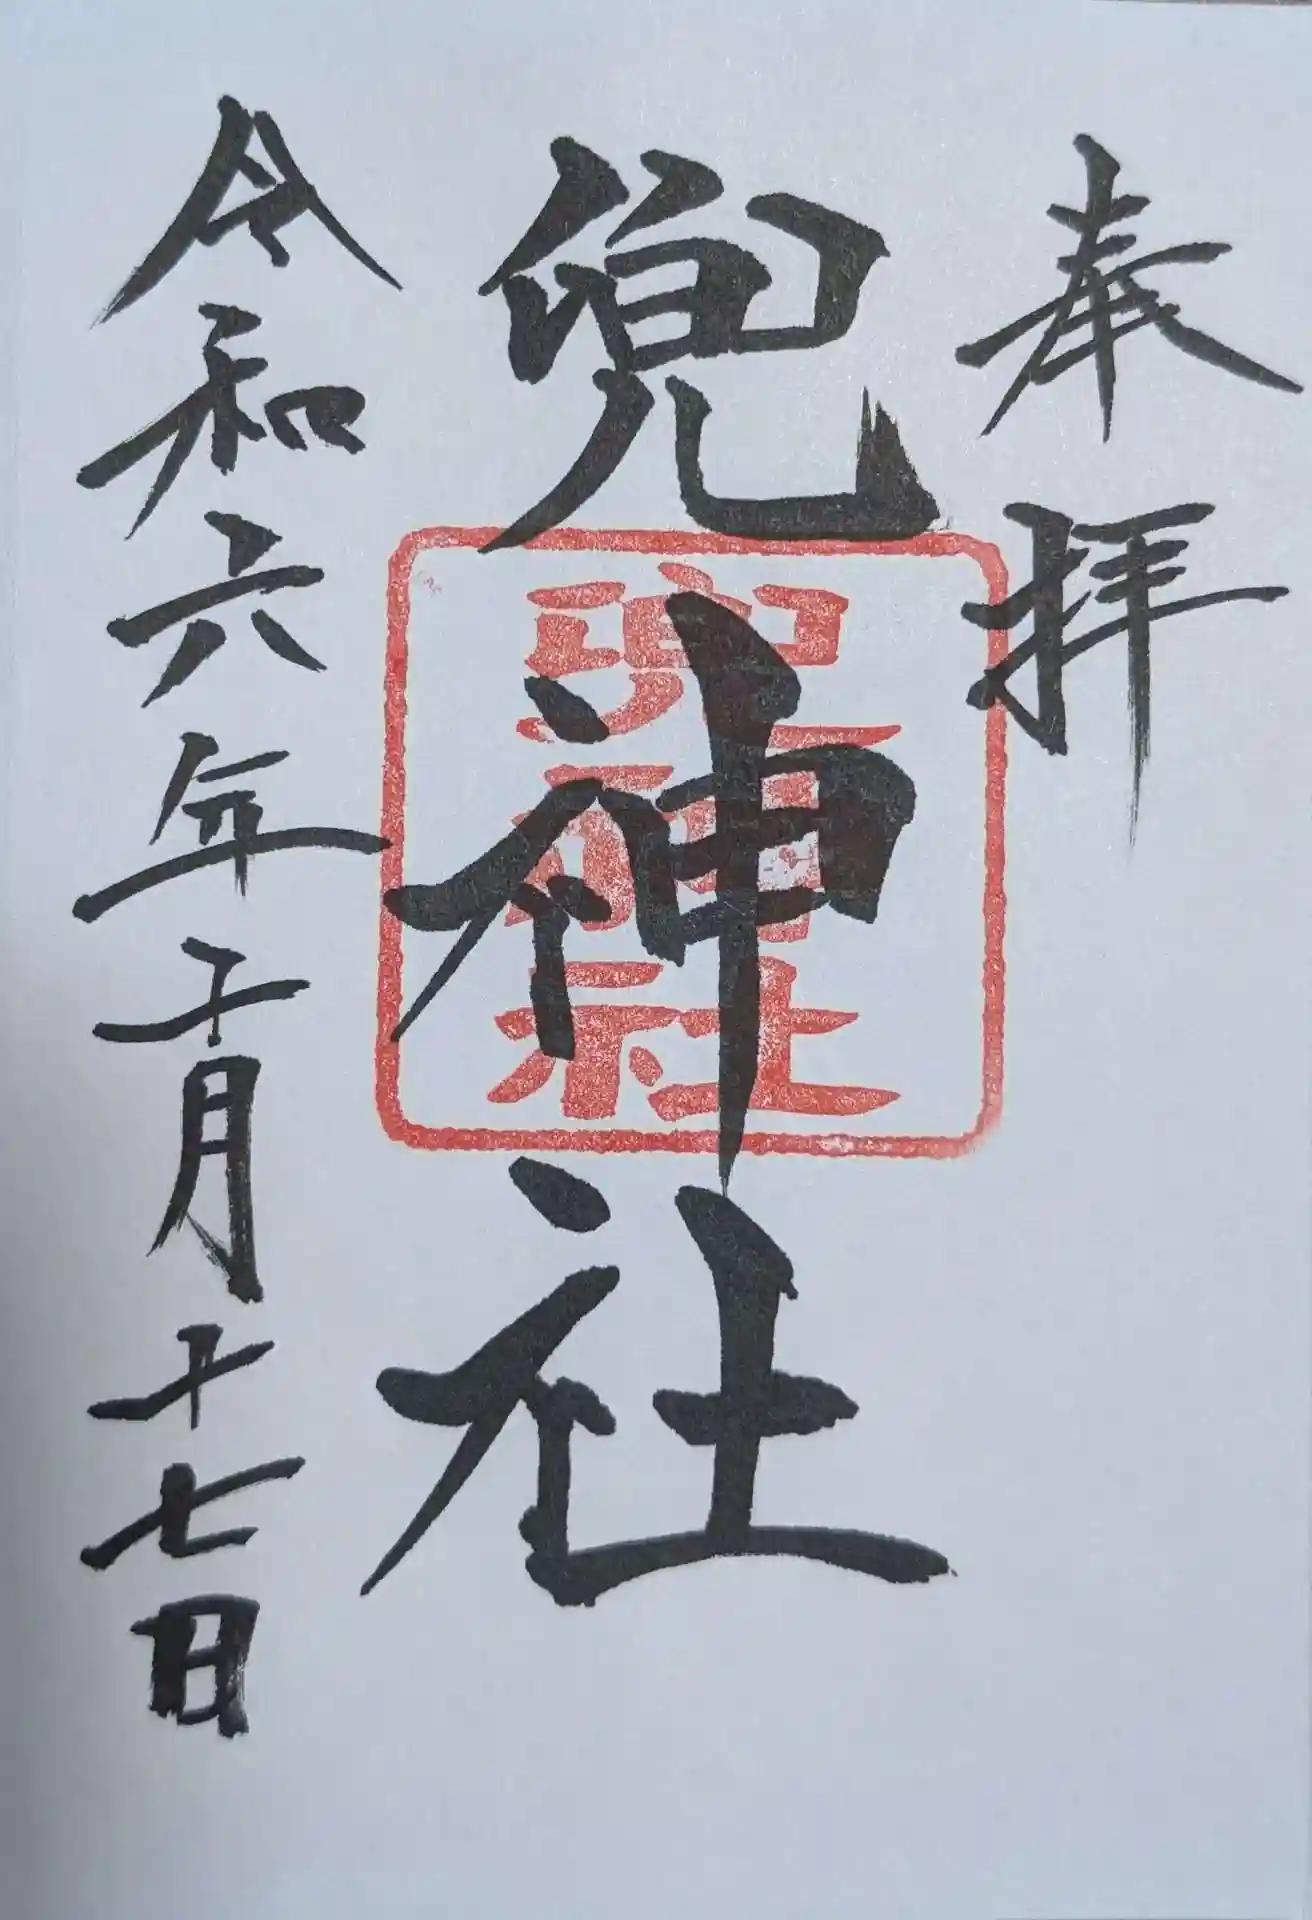 奉拝
兜神社
兜神社
令和六年十月十七日